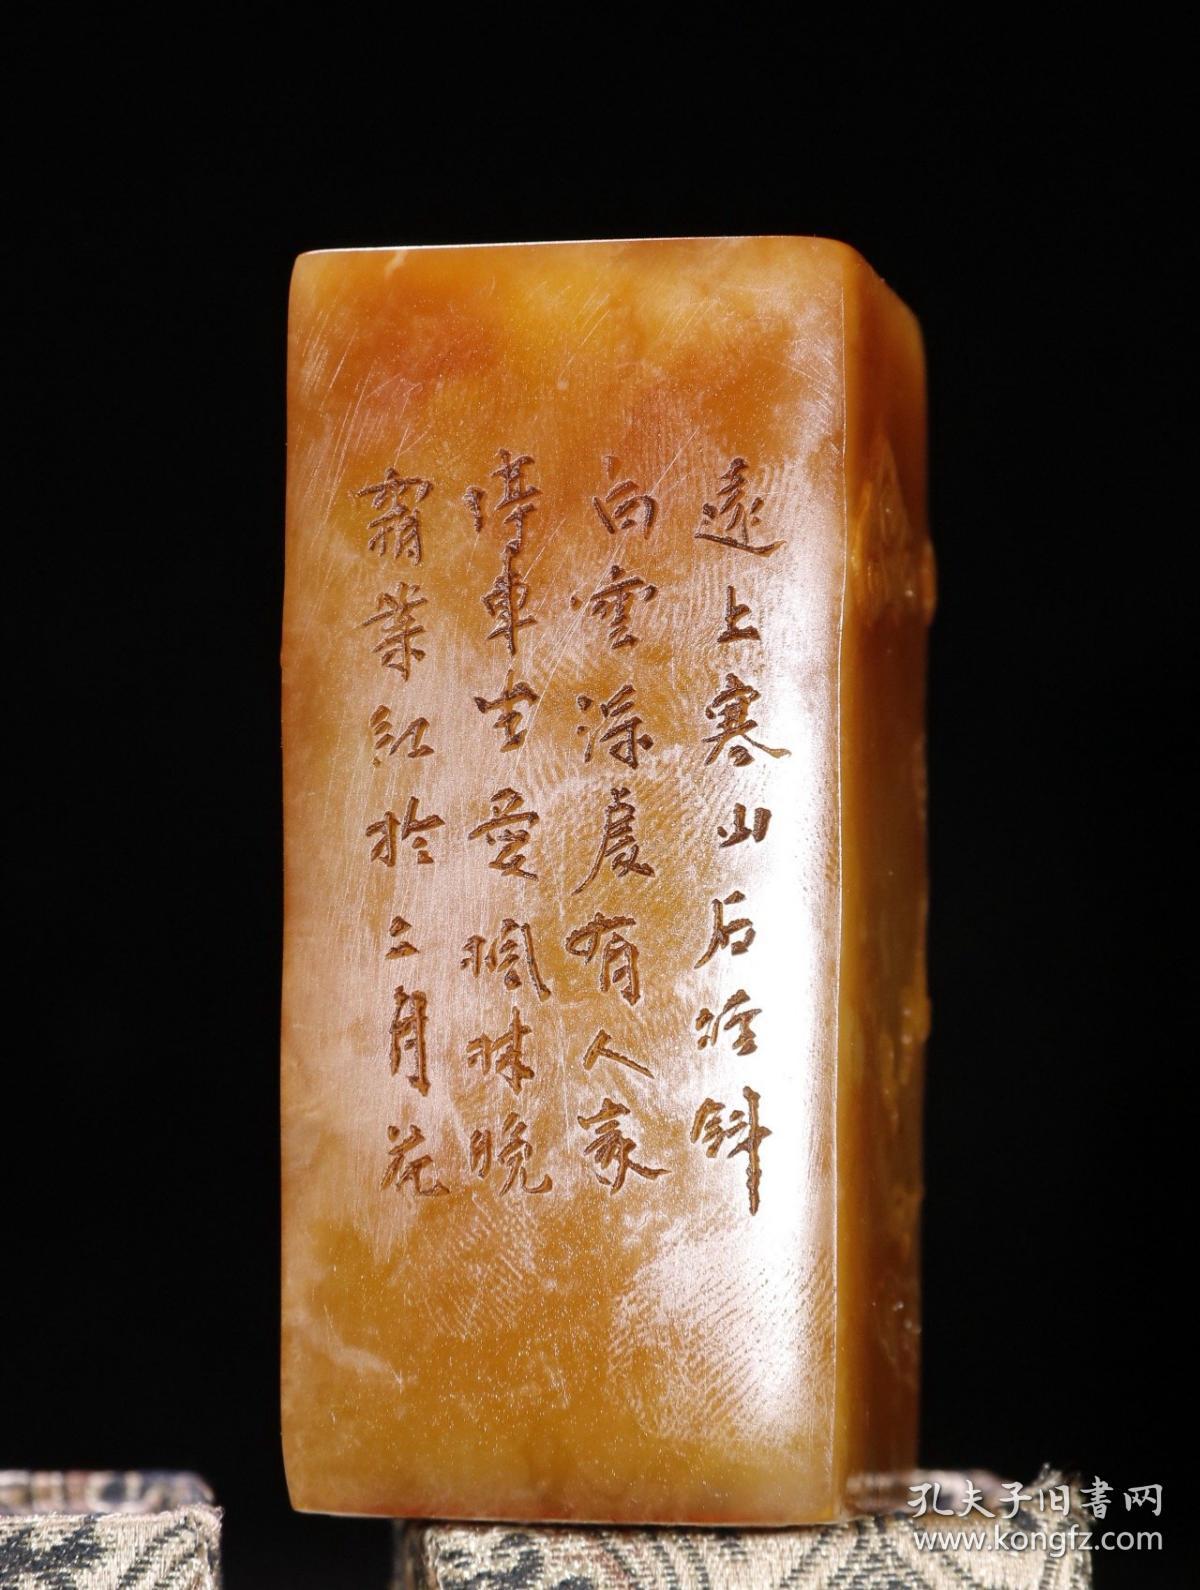 遠上寒山石径斜
白雲深處有人家
停車坐愛楓林晚
霜葉紅於二月花
孔夫子旧書网
www.kongfz.com